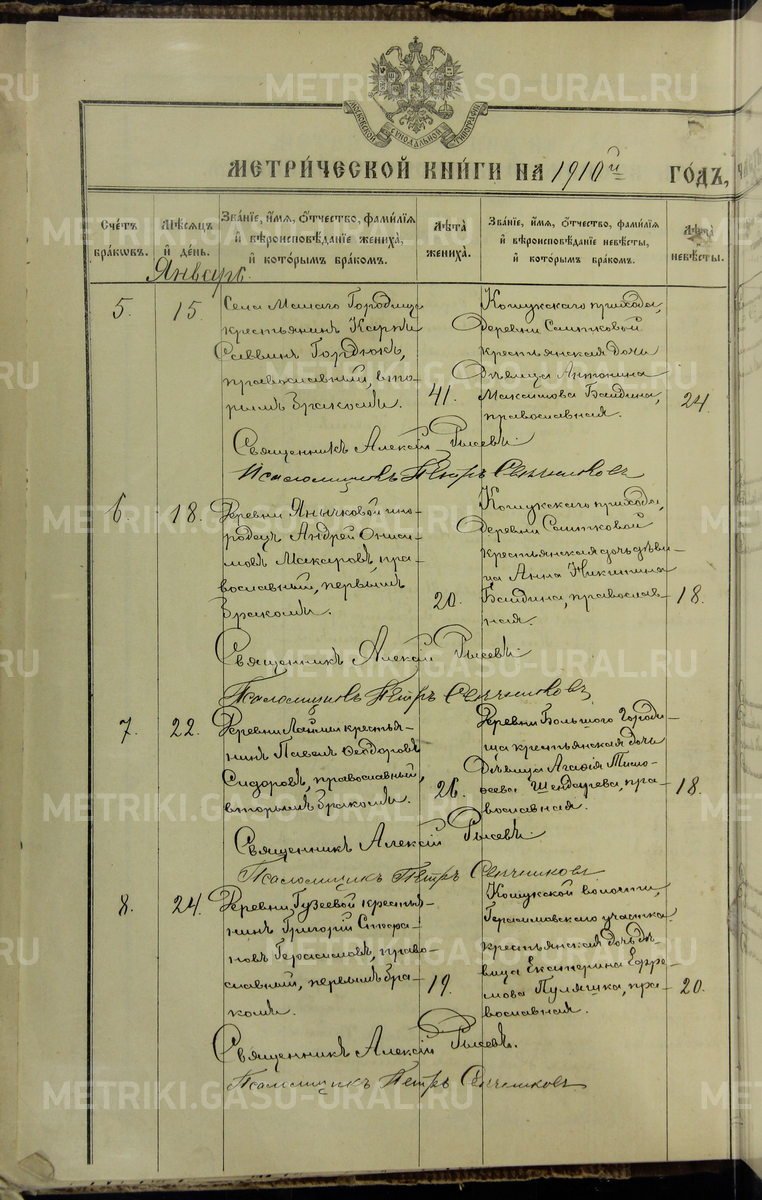 METRIKI.GASO-URAL.RU
МОСКОВСКОЙ СѴНОДАЛЬНОЙ ТИПОГРАФІИ
МЕТРИЧЕСКОЙ КНИГИ НА 1910й ГОДЪ,
Счетъ браковъ.
Мѣсяцъ и день.
Званіе, имя, отчество, фамилія
и вѣроисповѣданіе жениха,
и которымъ бракомъ.
Лѣта жениха.
Званіе, имя, отчество, фамилія
и вѣроисповѣданіе невѣсты,
и которымъ бракомъ.
Лѣта невѣсты.
Январь.
5.
15.
Села Малаго Городища
крестьянинъ Карпъ
Саввинъ Гордюкъ,
православный, вто-
рымъ бракомъ.
41.
Кошукскаго прихода,
деревни Саитковой
крестьянская дочь
дѣвица Антонина
Максимова Баидина,
православная.
24.
Священникъ Алексій Рысевъ.
Псаломщикъ Петръ
6.
18.
Деревни Янычковой ино-
родецъ Андрей Ониси-
мовъ Макаровъ, пра-
вославный, первымъ
бракомъ.
20.
Кошукскаго прихода,
деревни Саитковой
крестьянская дочь дѣви-
ца Анна Никитина
Баидина, православ-
ная.
18.
Священникъ Алексій Рысевъ.
Псаломщикъ Петръ
7.
22.
Деревни крестья-
нинъ Павелъ Ѳеодоровъ
Сидоровъ, православный,
вторымъ бракомъ.
26.
Деревни Большого Городи-
ща крестьянская дочь
дѣвица Агаѳія Тимо-
ѳеева пра-
вославная.
18.
Священникъ Алексій Рысевъ.
Псаломщикъ Петръ
8.
24.
Деревни Гузеевой крестья-
нинъ Григорій Стефа-
новъ Герасимовъ, право-
славный, первымъ бра-
комъ.
19.
Кошукской волости,
Герасимовскаго участка
крестьянская дочь дѣ-
вица Екатерина Ефре-
мова Пуляшка, пра-
вославная.
20.
Священникъ Алексій Рысевъ.
Псаломщикъ Петръ